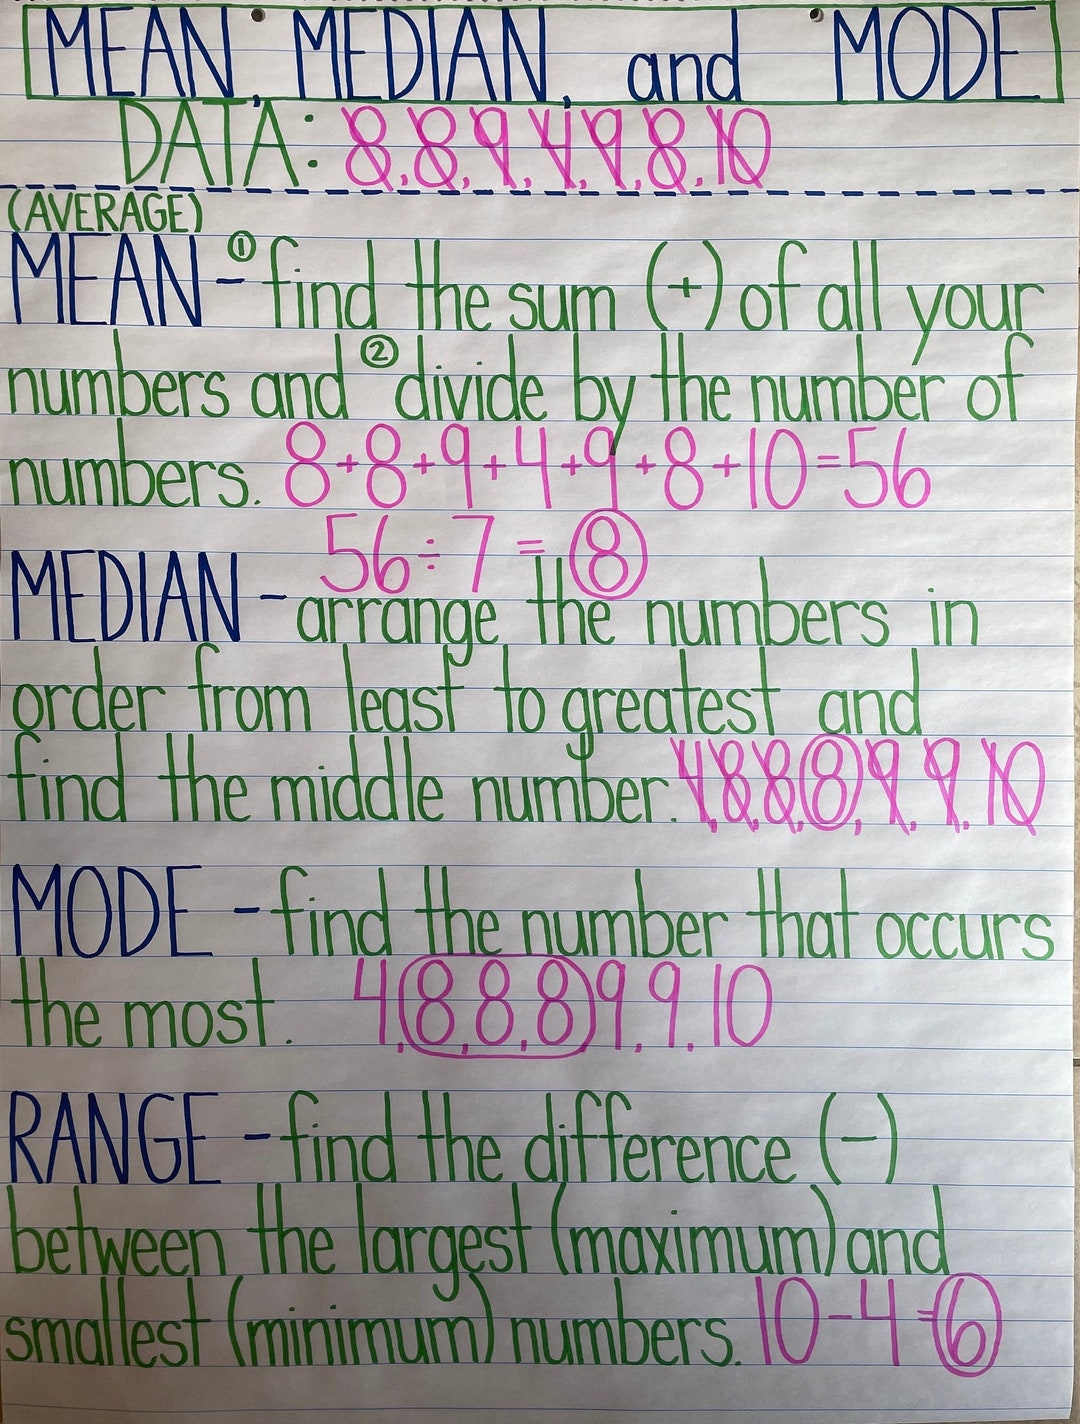 MEAN, MEDIAN, and MODE
DATA: 8, 8, 9, 4, 9, 8, 10
(AVERAGE)
MEAN - ① find the sum (+) of all your
numbers and ② divide by the number of
numbers. 8+8+9+4+9+8+10=56
56÷7=8
MEDIAN - arrange the numbers in
order from least to greatest and
find the middle number. 4, 8, 8, 8, 9, 9, 10
MODE - find the number that occurs
the most. 4, 8, 8, 8, 9, 9, 10
RANGE - find the difference (-)
between the largest (maximum) and
smallest (minimum) numbers. 10-4=6